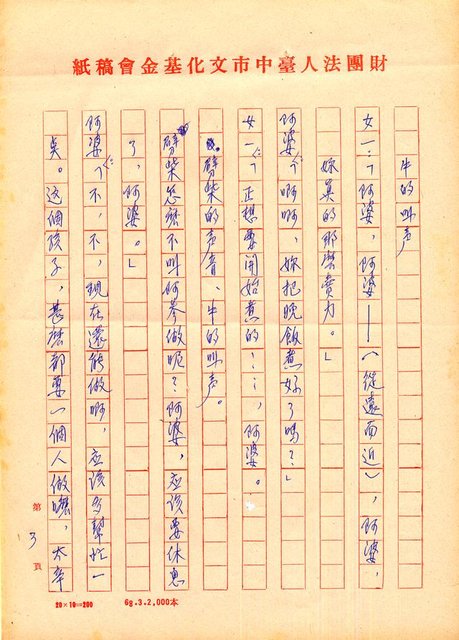 財團法人臺中市文化基金會稿紙
牛的叫声
女一：「阿婆，阿婆——（從遠而近），阿婆，
妳真的那麼賣力。」
阿婆：「啊啊，妳把晚飯煮好了嗎？」
女一：「正想要開始煮的……，阿婆。
劈柴的声音、牛的叫声。
劈柴怎麼不叫阿爹做呢？阿婆，应该要休息
了，阿婆。」
阿婆：「不，不，現在還能做啊，应该多幫忙一
点。这個孩子，甚麼都要一個人做嚒，太辛
第3頁
20×10=200
69.3.2,000本